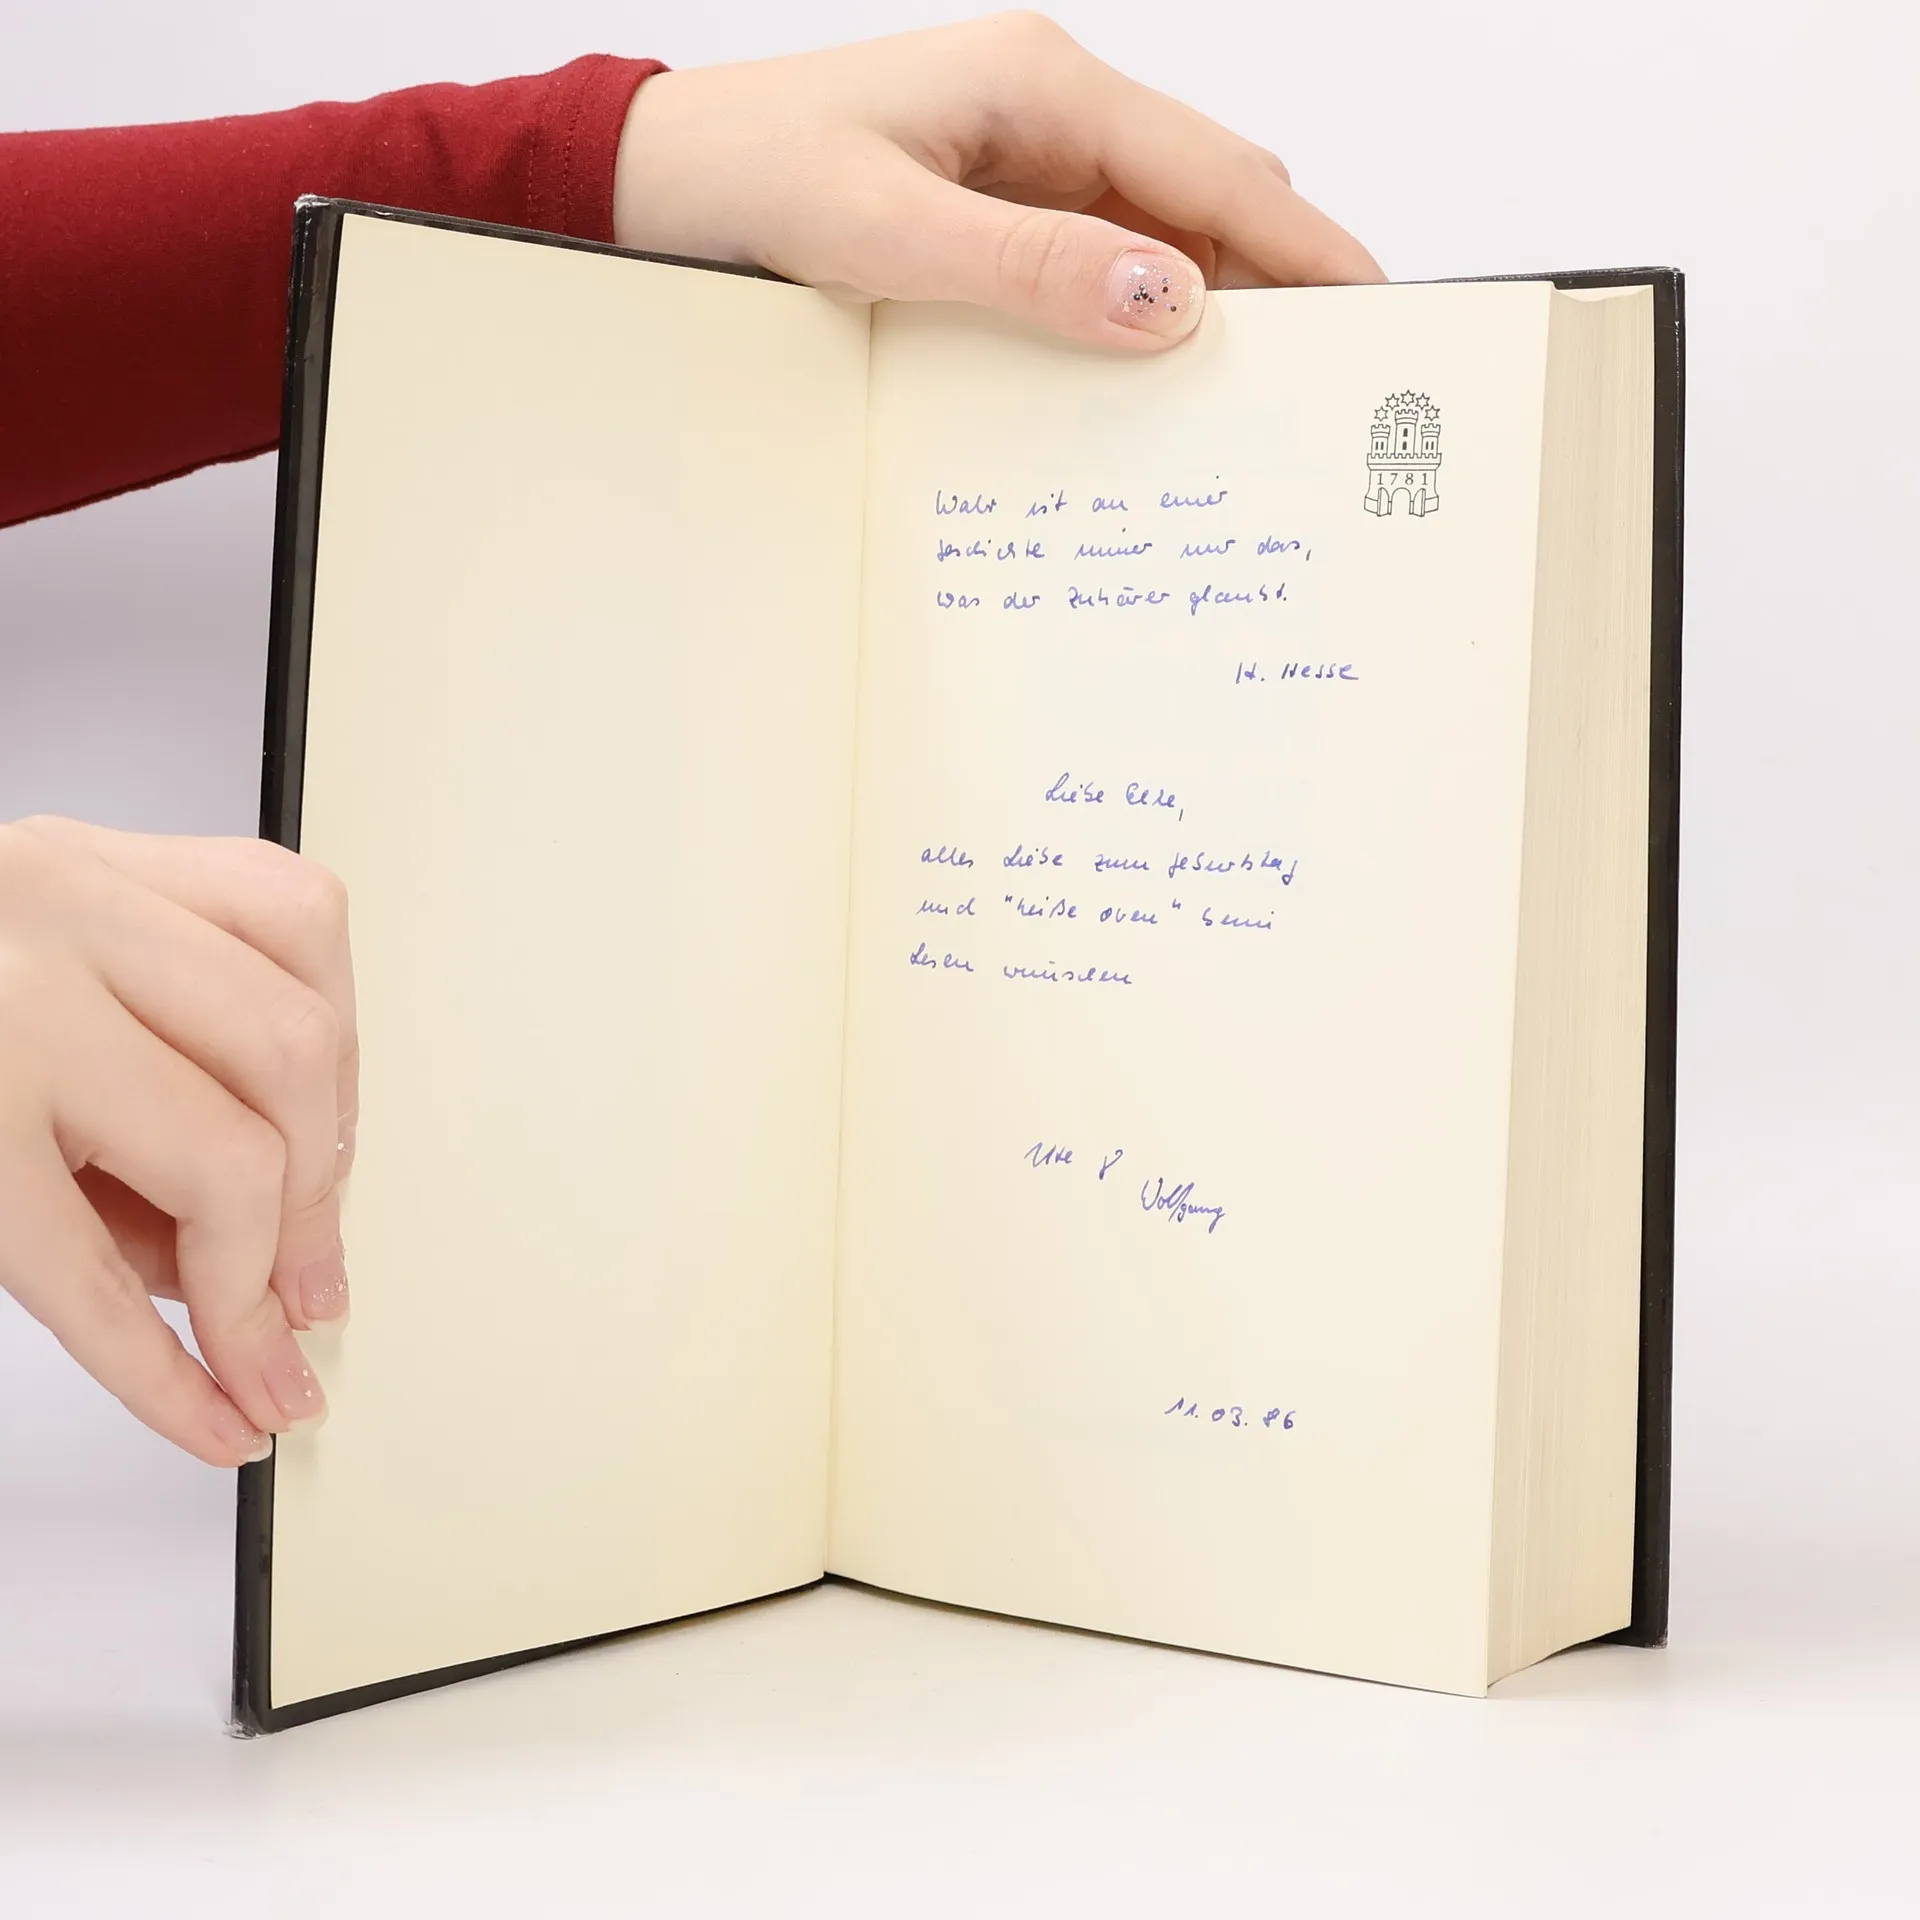 1781
Wahr ist an einer
Geschichte immer nur das,
was der Zuhörer glaubt.
H. Hesse
Liebe Elke,
alles Liebe zum Geburtstag
und "heiße Ohren" beim
Lesen wünschen
Ute &
Wolfgang
11.03.86